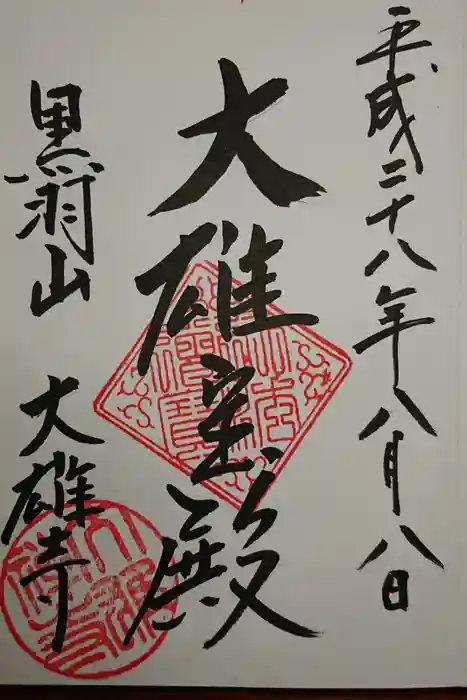 平成二十八年八月八日
大雄宝殿
黒羽山
大雄寺